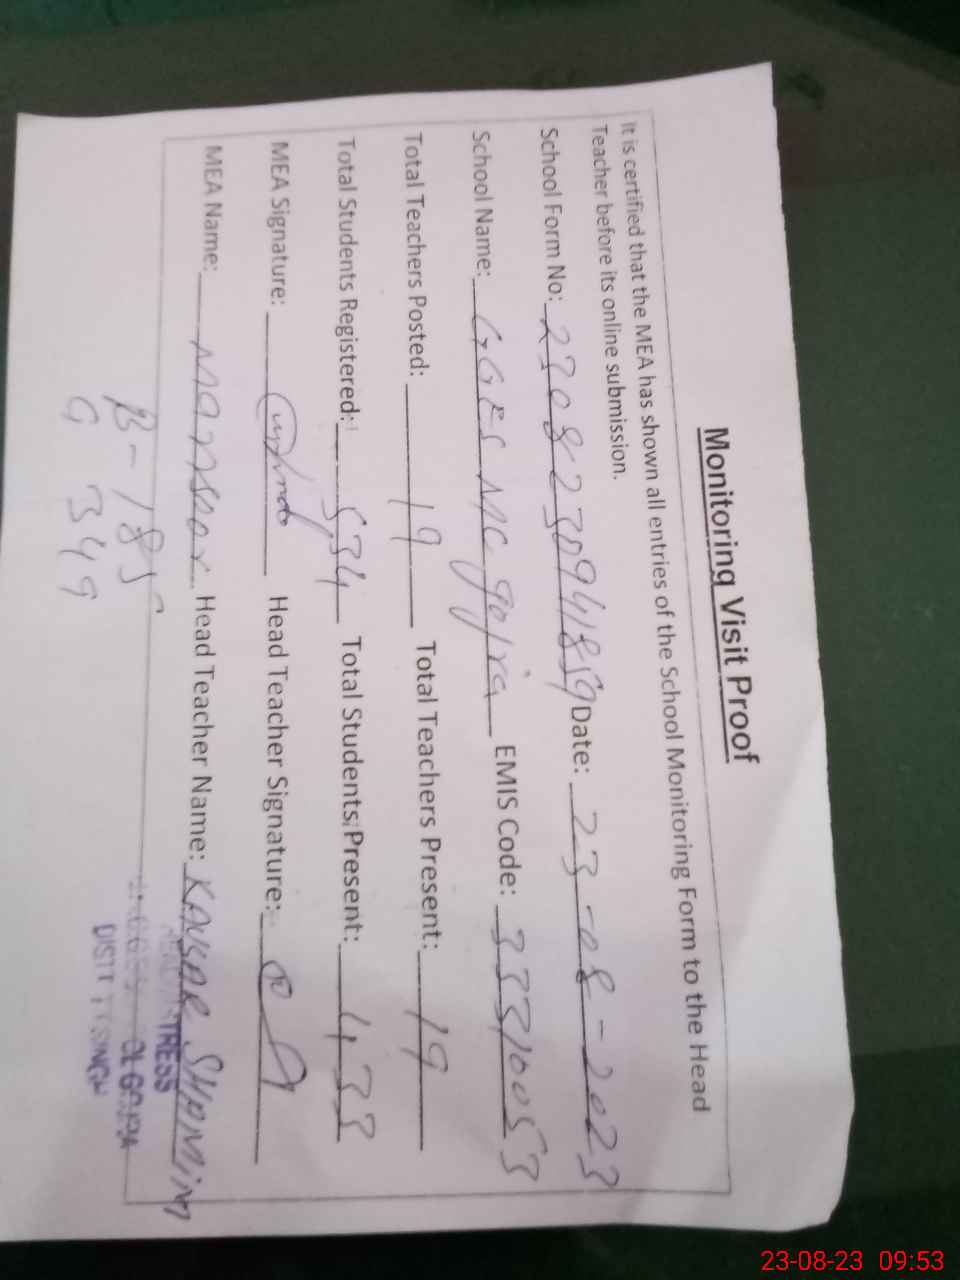 Monitoring Visit Proof
It is certified that the MEA has shown all entries of the School Monitoring Form to the Head
Teacher before its online submission.
School Form No: 2308230941859 Date: 23-08-2023
School Name: GGES MC gojra EMIS Code: 33310053
Total Teachers Posted: 19 Total Teachers Present: 19
Total Students Registered: 534 Total Students Present: 433
MEA Signature: Head Teacher Signature:
MEA Name: Mansoor Head Teacher Name: KAUSAR SHAMIM
B-185
G 349
TRESS
GOJRA
DISTT T.T.SINGH
23-08-23 09:53